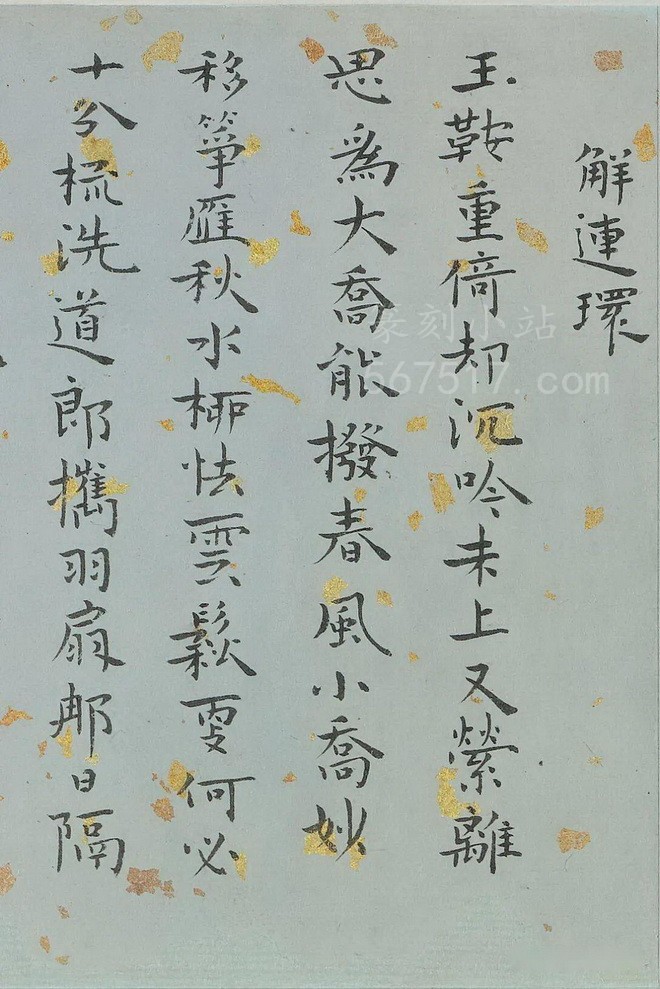 解連環
玉鞍重倚却沉吟未上又縈離
思為大喬能撥春風小喬妙
移箏雁秋水栁怯雲鬆更何必
十分梳洗道郎攜羽扇那日隔
篆刻小站
667517.com